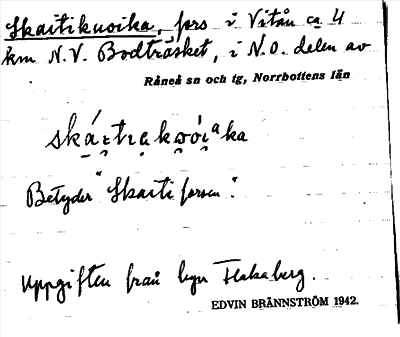 Skaitikuoika, fors i Vitån ca 4
km N.V. Bodträsket, i N.O. delen av
Råneå sn och tg, Norrbottens län
Betyder "Skaiti forsen".
Uppgiften från byn Flakaberg.
EDVIN BRÄNNSTRÖM 1942.